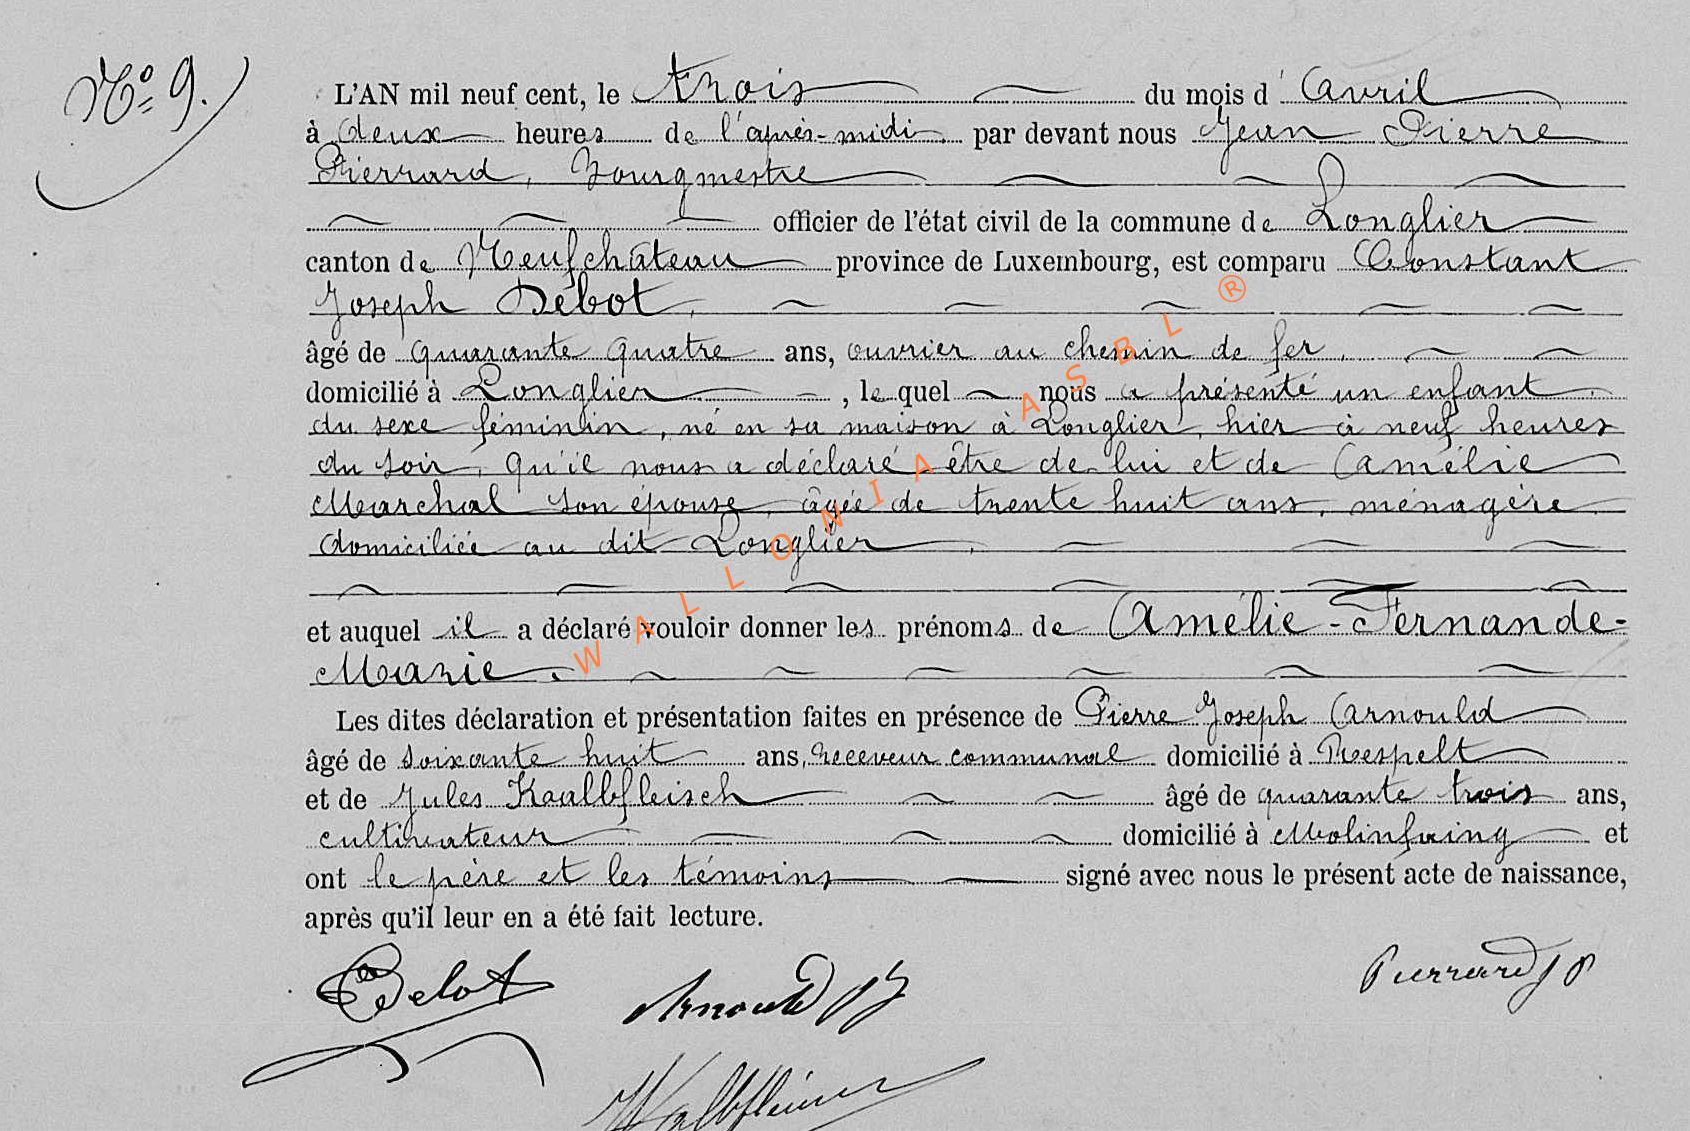 N° 9.
L'AN mil neuf cent, le trois du mois d' Avril
à deux heures de l'après-midi par devant nous Jean Pierre
Pierrard, Bourgmestre
officier de l'état civil de la commune de Longlier
canton de Neufchâteau province de Luxembourg, est comparu Constant
Joseph Débot,
âgé de quarante quatre ans, ouvrier au chemin de fer,
domicilié à Longlier , le quel nous a présenté un enfant
du sexe féminin, né en sa maison à Longlier, hier à neuf heures
du soir, qu'il nous a déclaré être de lui et de Amélie
Marchal son épouse, âgée de trente huit ans, ménagère
domiciliée au dit Longlier,
et auquel il a déclaré vouloir donner les prénoms de Amélie-Fernande-
Marie.
Les dites déclaration et présentation faites en présence de Pierre Joseph Arnould
âgé de soixante huit ans, receveur communal domicilié à Respelt
et de Jules Kaalbfleisch âgé de quarante trois ans,
cultivateur domicilié à Molinfaing et
ont le père et les témoins signé avec nous le présent acte de naissance,
après qu'il leur en a été fait lecture.
Debot Arnould PJ Pierrard JP
WALLONIA ASBL ®